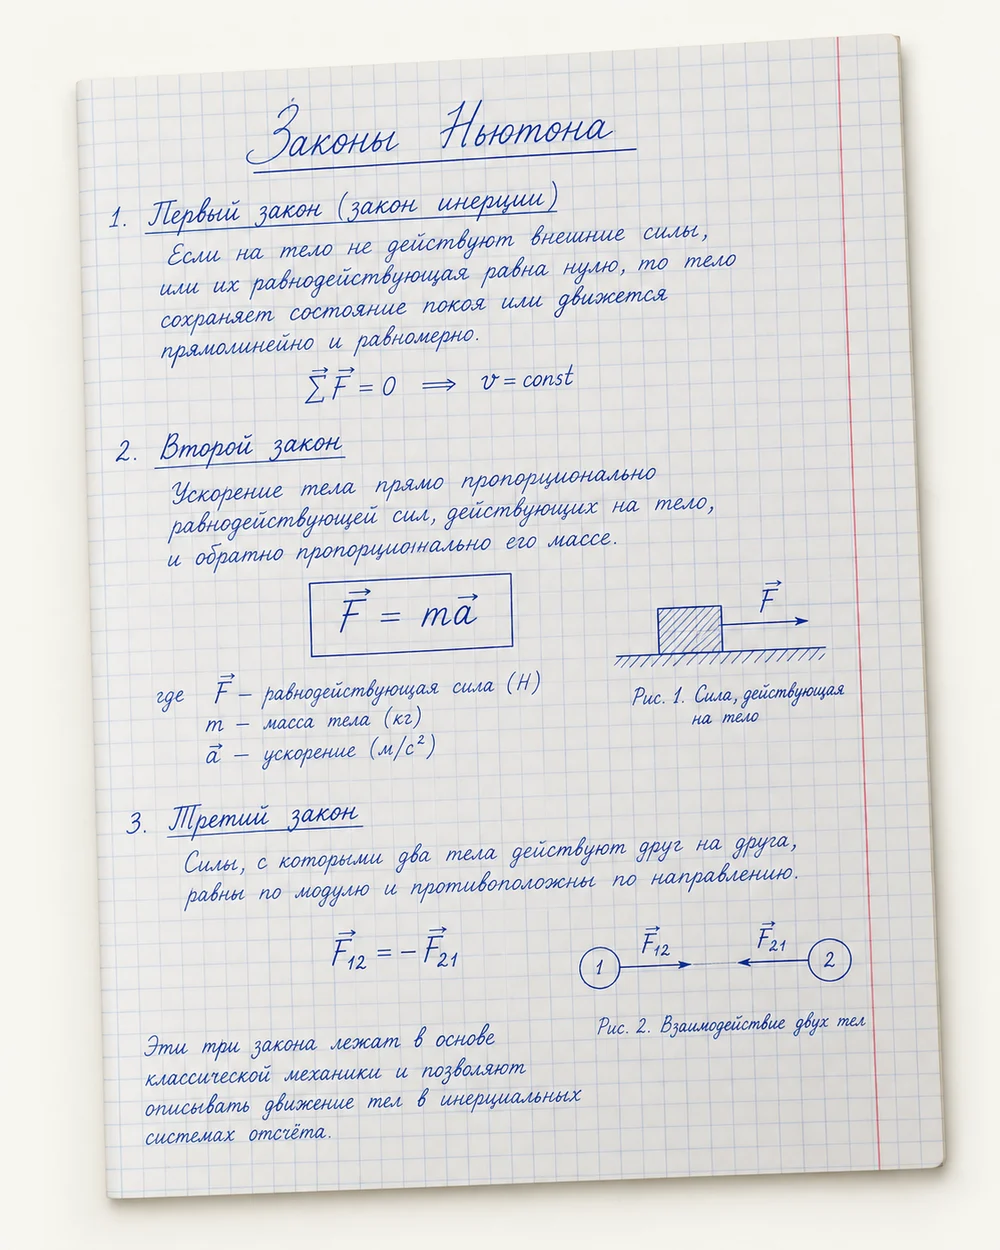 Законы Ньютона
1. Первый закон (закон инерции)
Если на тело не действуют внешние силы,
или их равнодействующая равна нулю, то тело
сохраняет состояние покоя или движется
прямолинейно и равномерно.
∑⃗ F⃗ = 0 ⟹ v = const
2. Второй закон
Ускорение тела прямо пропорционально
равнодействующей сил, действующих на тело,
и обратно пропорционально его массе.
F⃗ = ma⃗
F⃗
где F⃗ – равнодействующая сила (Н)
m – масса тела (кг)
a⃗ – ускорение (м/с²)
Рис. 1. Сила, действующая
на тело
3. Третий закон
Силы, с которыми два тела действуют друг на друга,
равны по модулю и противоположны по направлению.
F⃗₁₂ = – F⃗₂₁
1 F⃗₁₂ F⃗₂₁ 2
Рис. 2. Взаимодействие двух тел
Эти три закона лежат в основе
классической механики и позволяют
описывать движение тел в инерциальных
системах отсчёта.